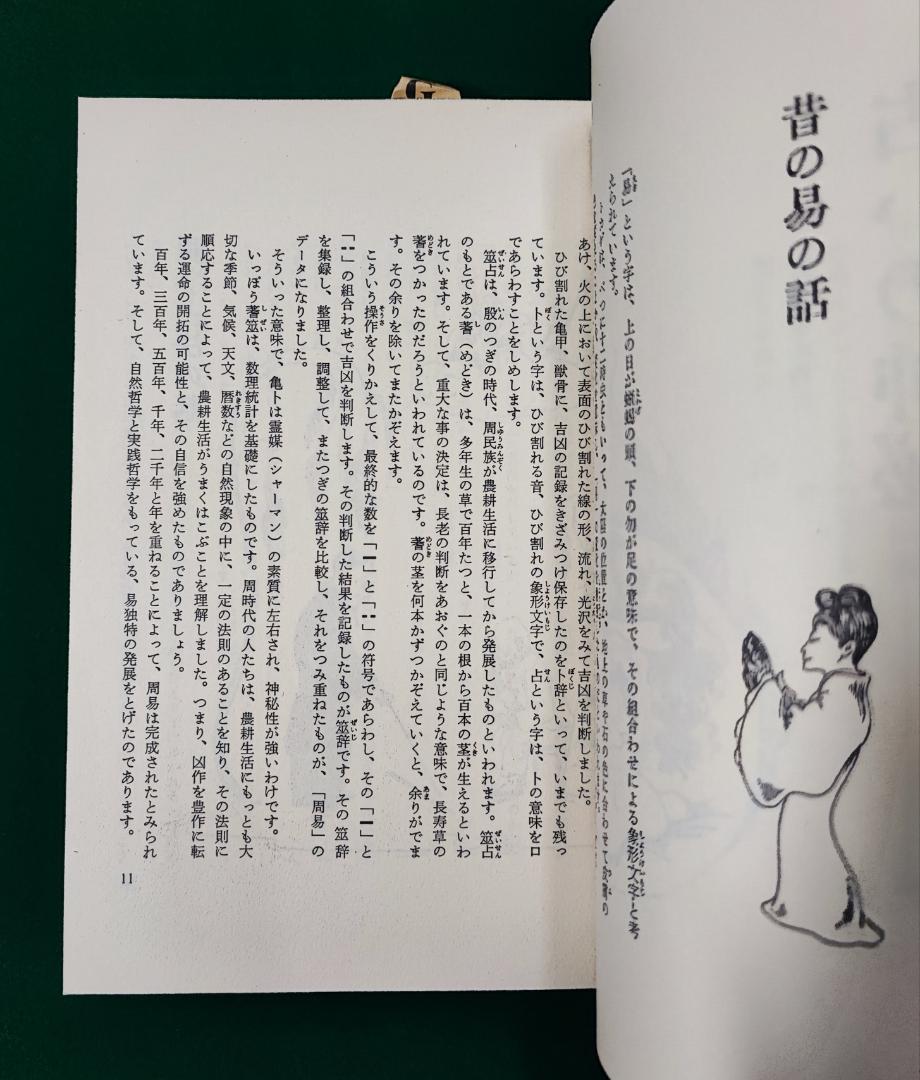 昔の易の話
「易」という字は、上の日が蜥蜴の頭、下の勿が足の意味で、その組合わせによる象形文字と考
えられています。
あけ、火の上において表面のひび割れた線の形、流れ、光沢をみて吉凶を判断しました。
ひび割れた亀甲、獣骨に、吉凶の記録をきざみつけ保存したのを卜辞といって、いまでも残っ
ています。卜という字は、ひび割れる音、ひび割れの象形文字で、占という字は、卜の意味をロ
であらわすことをしめします。
筮占は、殷のつぎの時代、周民族が農耕生活に移行してから発展したものといわれます。筮占
のもとである蓍(めどき)は、多年生の草で百年たつと、一本の根から百本の茎が生えるといわ
れています。そして、重大な事の決定は、長老の判断をあおぐのと同じような意味で、長寿草の
蓍をつかったのだろうといわれているのです。蓍の茎を何本かずつかぞえていくと、余りがでま
す。その余りを除いてまたかぞえます。
こういう操作をくりかえして、最終的な数を「━」と「╍」の符号であらわし、その「━」と
「╍」の組合わせで吉凶を判断します。その判断した結果を記録したものが筮辞です。その筮辞
を集録し、整理し、調整して、またつぎの筮辞を比較し、それをつみ重ねたものが、「周易」の
データになりました。
そういった意味で、亀卜は霊媒(シャーマン)の素質に左右され、神秘性が強いわけです。
いっぽう蓍筮は、数理統計を基礎にしたものです。周時代の人たちは、農耕生活にもっとも大
切な季節、気候、天文、暦数などの自然現象の中に、一定の法則のあることを知り、その法則に
順応することによって、農耕生活がうまくはこぶことを理解しました。つまり、凶作を豊作に転
ずる運命の開拓の可能性と、その自信を強めたものでありましょう。
百年、三百年、五百年、千年、二千年と年を重ねることによって、周易は完成されたとみられ
ています。そして、自然哲学と実践哲学をもっている、易独特の発展をとげたのであります。
11